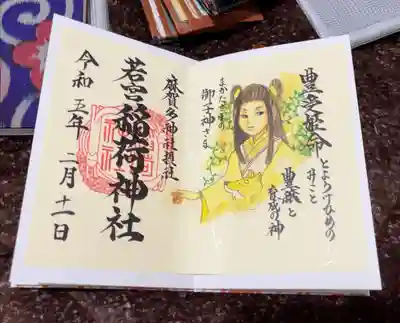 豊受姫命
とようけひめの
みこと
豊穣と
育成の神
まかたさまの
御子神さま
麻賀多神社摂社
若宮稲荷神社
令和五年 二月十一日